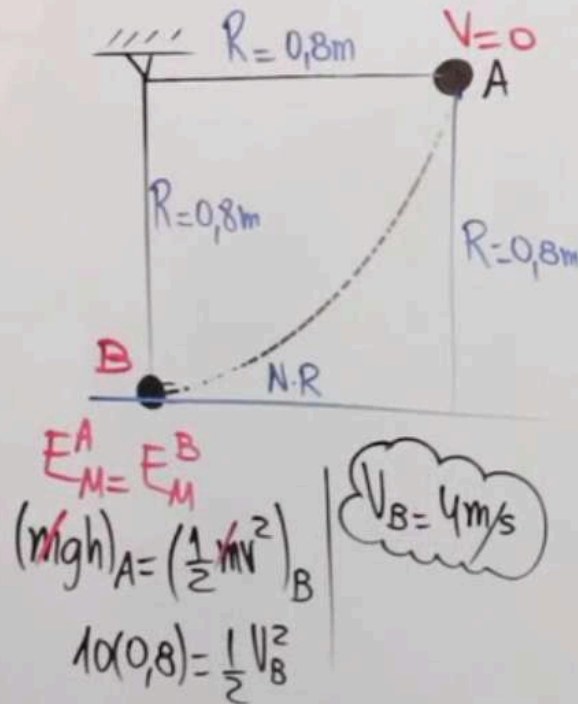 R=0,8m
V=0
A
R=0,8m
R=0,8m
B
N.R
E_M^A = E_M^B
(mgh)_A = (1/2 mv²)_B
10(0,8) = 1/2 V_B²
V_B = 4m/s